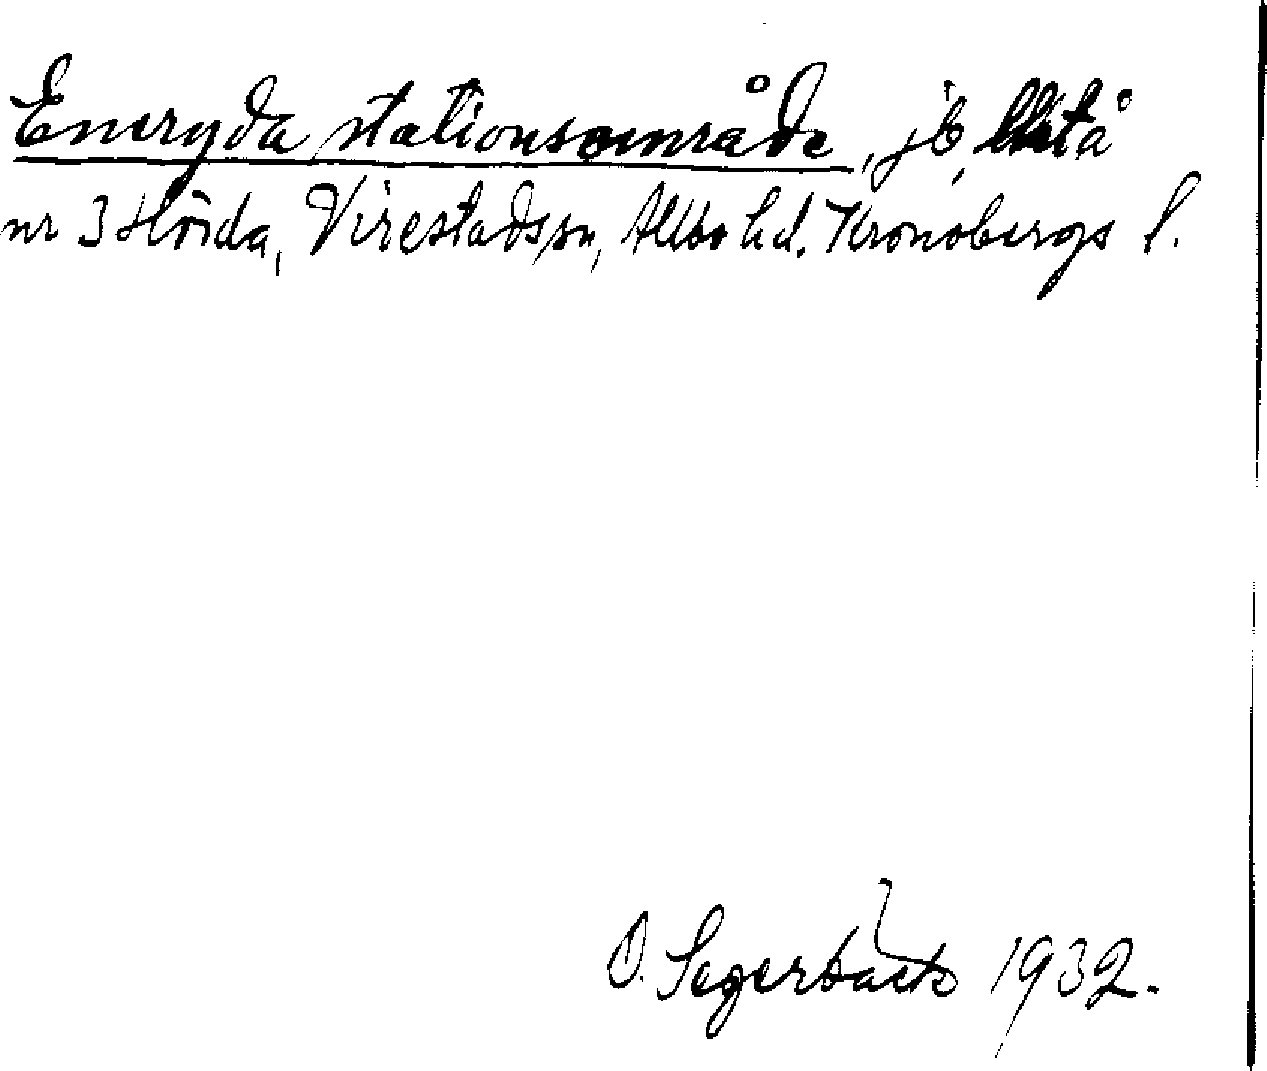 Eneryda stationsområde, jb litt å
nr 3 Hörda, Virestads sn, Allbo hd. Kronobergs l.
O. Segerbäck 1932.